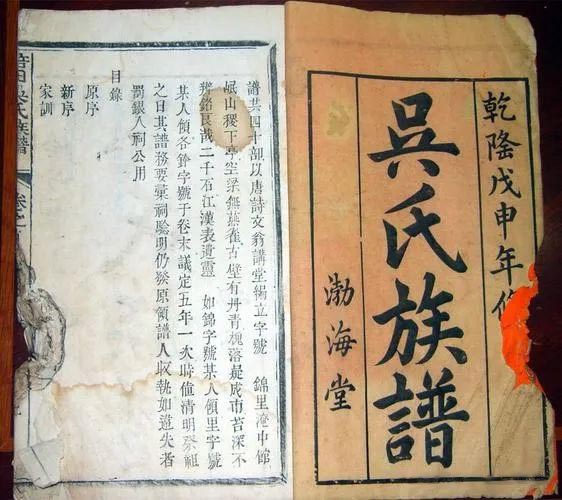 乾隆戊申年修
吳氏族譜
渤海堂
譜共四十部以唐詩文翁講堂獨立字號 錦里淹中館
岷山稷下亭空梁無燕雀古壁有丹青槐落疑成市苔深不
辨銘良哉二千石江漢表遺靈 如錦字號某人領里字號
某人領各鈐字號于卷末議定五年一次時值清明祭祖
之日其譜務要彙祠驗明仍發原領譜人収執如遺失者
罰銀入祠公用
目錄
原序
新序
家訓
吳氏族譜
卷之